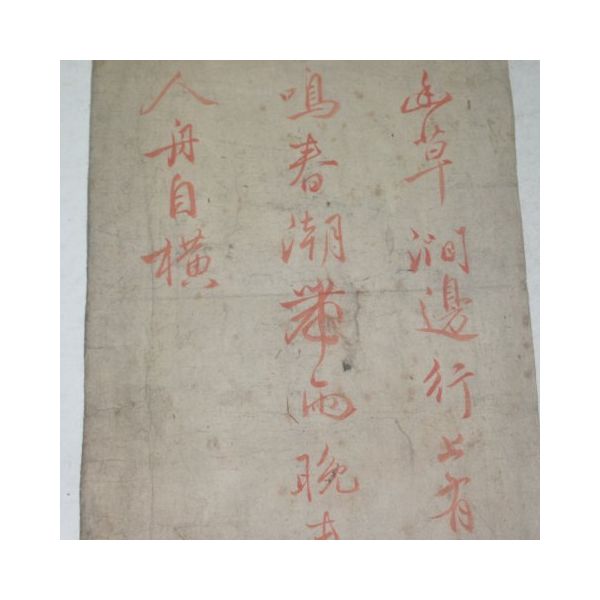 幽草澗邊行上有
鳴春潮帶雨晚
人舟自橫